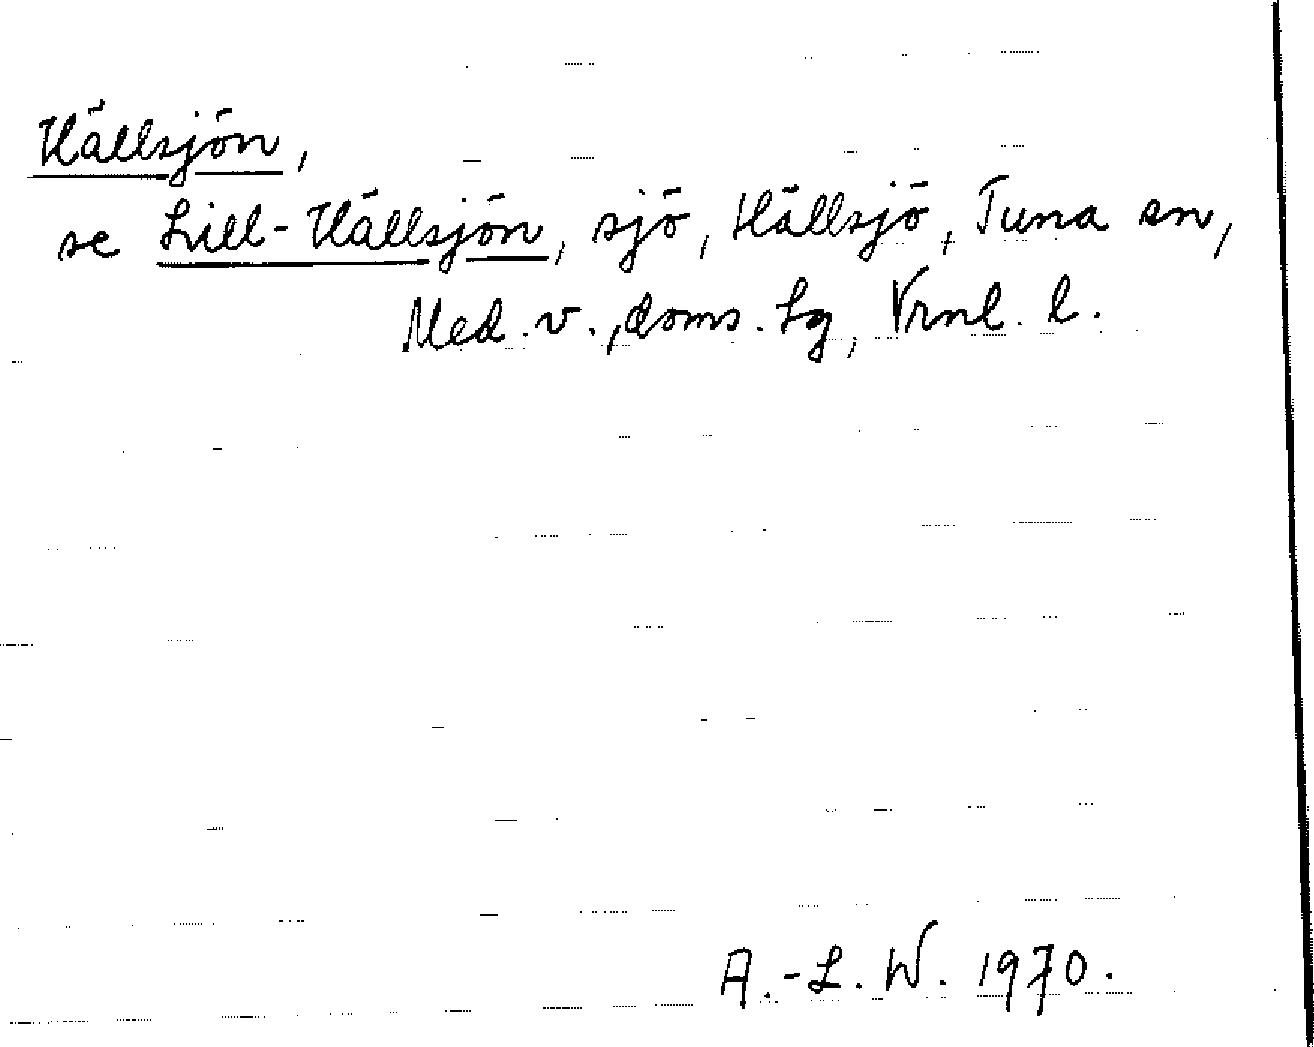 Hällsjön,
se Lill-Hällsjön, sjö, Hällsjö, Tuna sn,
Med. v., doms. Lg, Vrnl. l.
A.-L. W. 1970.